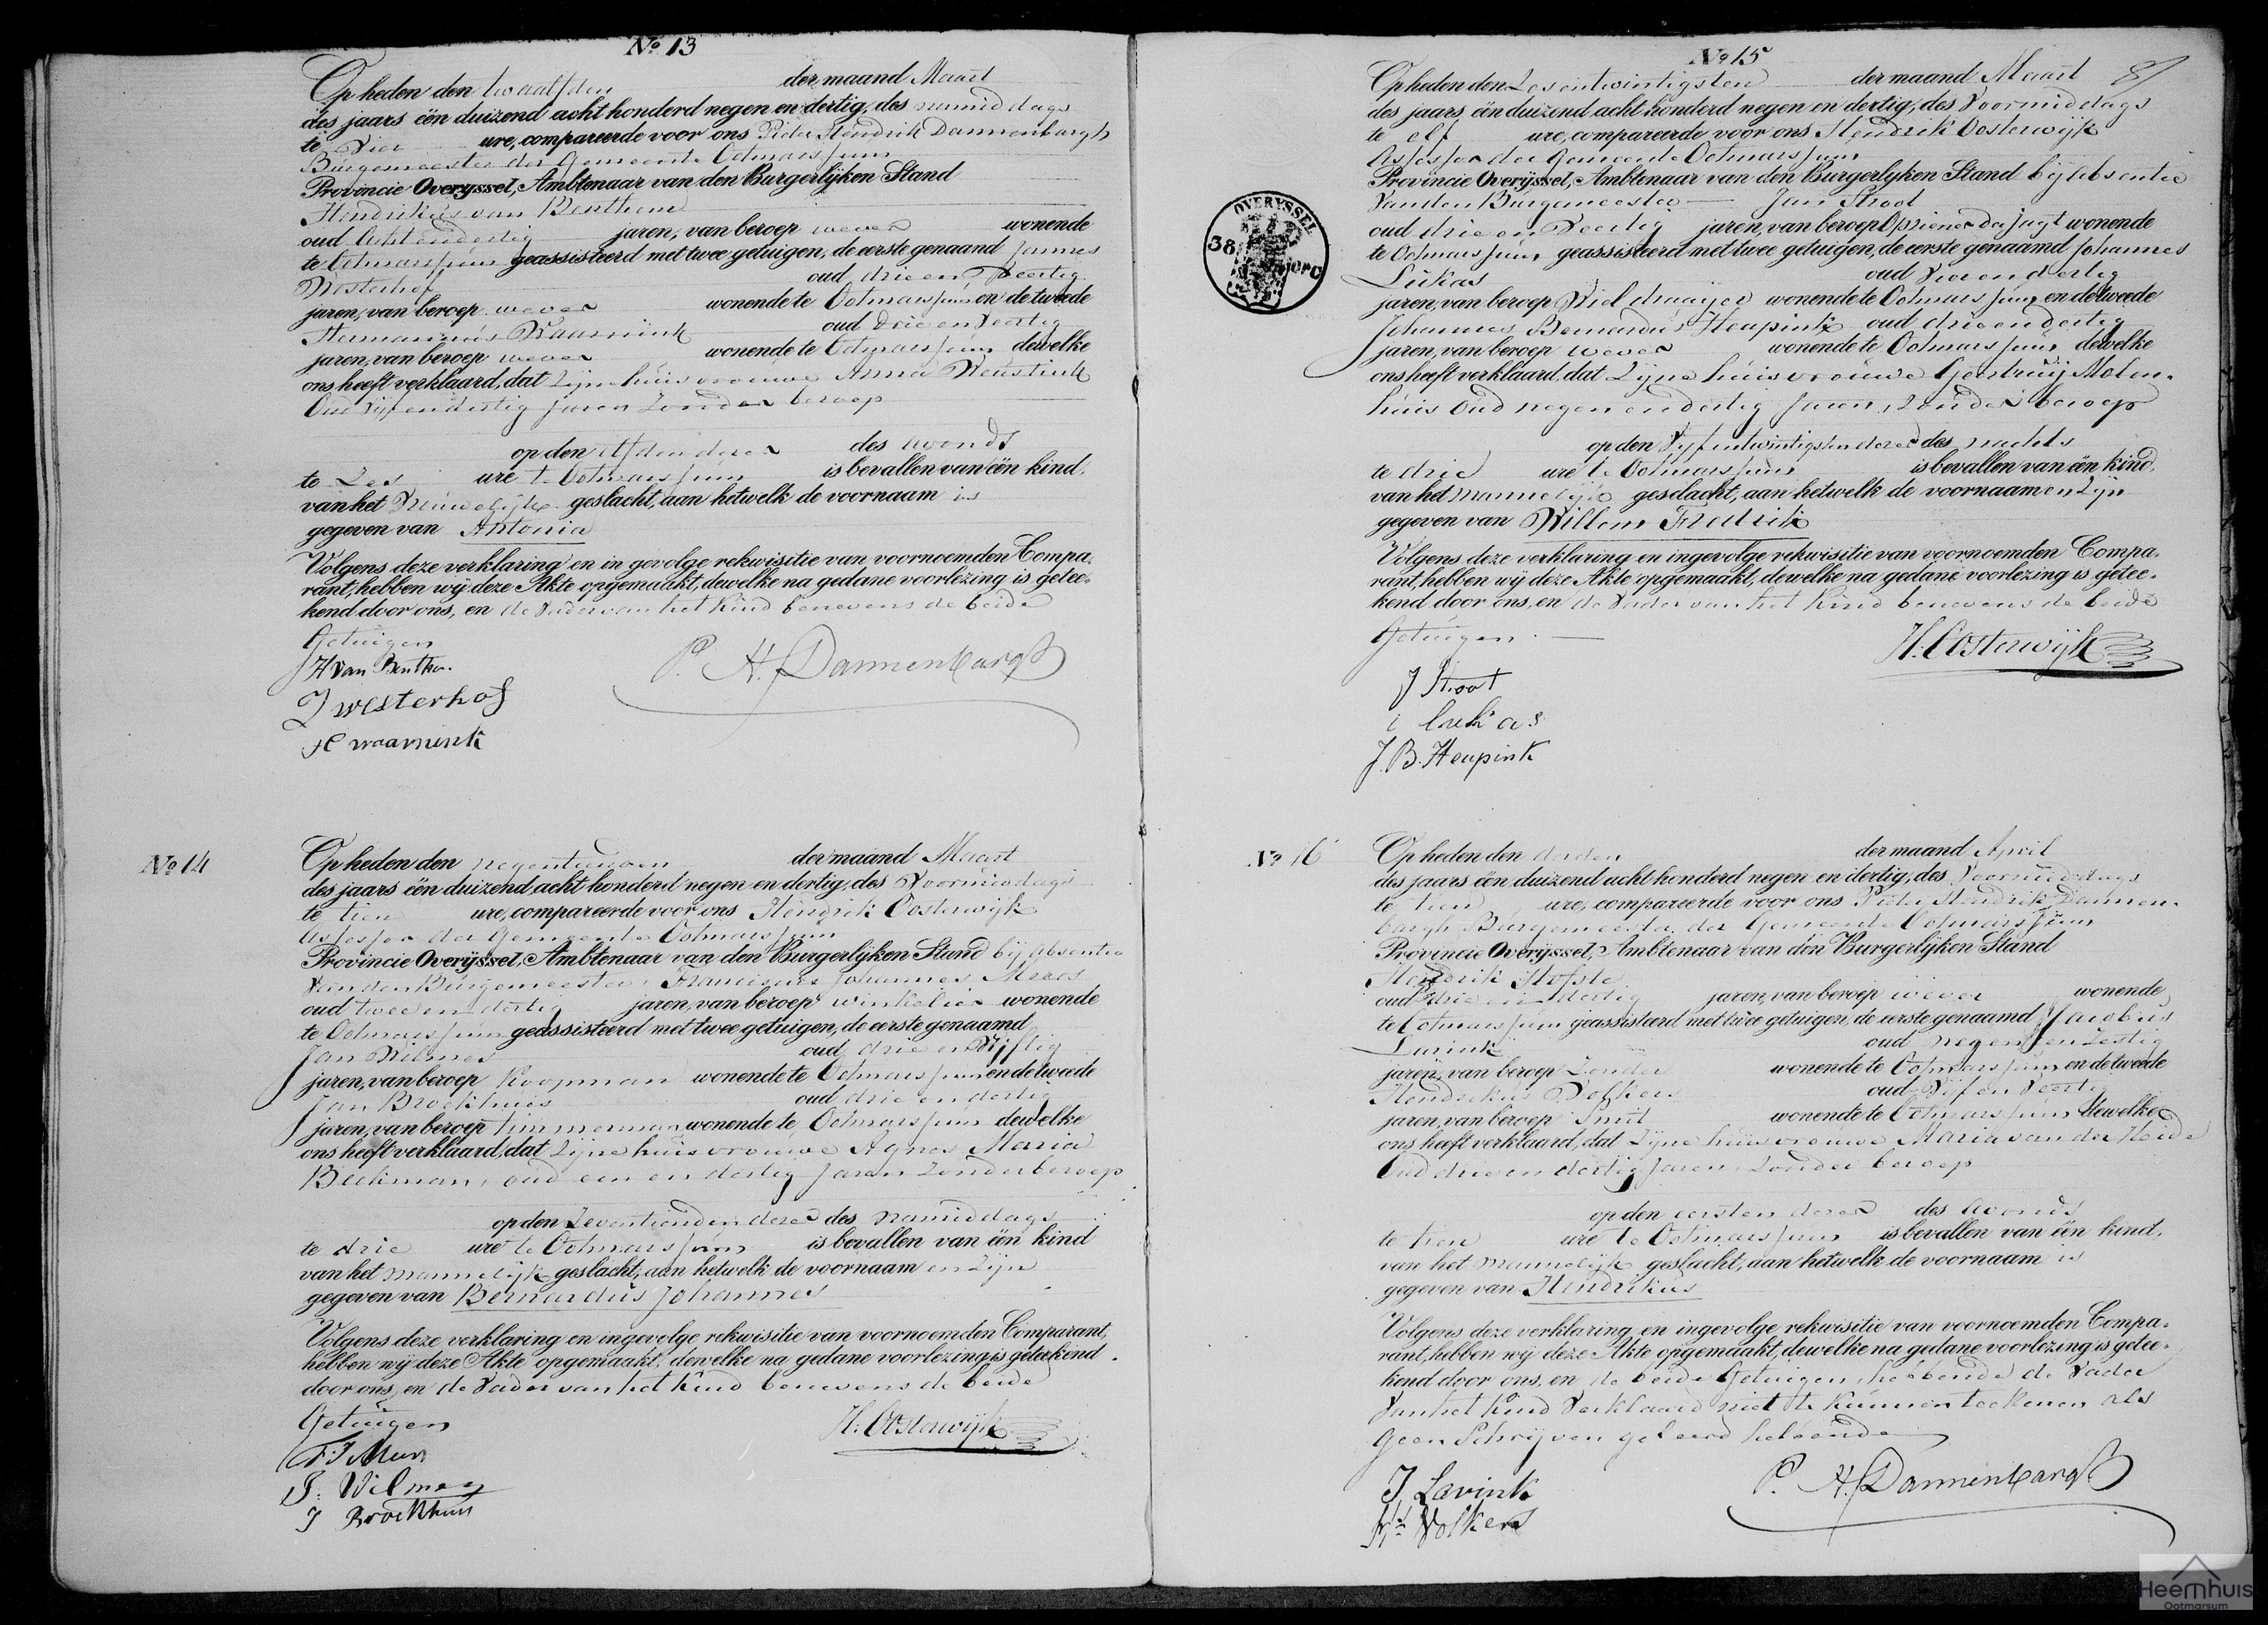 Nº 13
Op heden den twaalfden der maand Maart
des jaars één duizend acht honderd negen en dertig, des namiddags
te Vier ure, compareerde voor ons Pieter Hendrik Dannenbargh
Burgemeester der Gemeente Ootmarssum
Provincie Overyssel, Ambtenaar van den Burgerlijken Stand
Hendrikus van Benthem
oud Acht en dertig jaren, van beroep wever wonende
te Ootmarssum geassisteerd met twee getuigen, de eerste genaamd Jannes
Westerhof oud drie en Veertig
jaren, van beroep wever wonende te Ootmarssum en de tweede
Hermannus Waarnink oud drie en Veertig
jaren, van beroep wever wonende te Ootmarssum dewelke
ons heeft verklaard, dat Zijne huisvrouwe Anna
Oud Vijf en dertig Jaren Zonder beroep
op den elfden dezer des avonds
te Zes ure te Ootmarssum is bevallen van één kind,
van het Vrouwelijk geslacht, aan hetwelk de voornaam is
gegeven van Antonia
Volgens deze verklaring en in gevolge rekwisitie van voornoemden Compa-
rant, hebben wij deze Akte opgemaakt, dewelke na gedane voorlezing is getee-
kend door ons, en de Vader van het Kind benevens de beide
Getuigen
H Van Benthem
P. H. Dannenbargh
J westerhof
H waarnink
Nº 14
Op heden den negentienden der maand Maart
des jaars één duizend acht honderd negen en dertig, des Voormiddags
te tien ure, compareerde voor ons Hendrik Oosterwijk
Assessor der Gemeente Ootmarssum
Provincie Overijssel, Ambtenaar van den Burgerlijken Stand bij absentie
Van den Burgemeester, Franciscus Johannes
oud twee en dertig jaren, van beroep winkelier wonende
te Ootmarssum geassisteerd met twee getuigen, de eerste genaamd
Jan Wilmes oud drie en Vijftig
jaren, van beroep Koopman wonende te Ootmarssum en de tweede
Jan Broekhuis oud drie en dertig
jaren, van beroep timmerman wonende te Ootmarssum dewelke
ons heeft verklaard, dat Zijne huisvrouwe Agnes Maria
Beekman, oud een en dertig Jaren Zonder beroep
op den Zeventienden dezer des namiddags
te drie ure te Ootmarssum is bevallen van één kind
van het mannelijk geslacht, aan hetwelk de voornaam en Zijn
gegeven van Bernardus Johannes
Volgens deze verklaring en ingevolge rekwisitie van voornoemden Comparant,
hebben wij deze Akte opgemaakt, dewelke na gedane voorlezing is geteekend
door ons, en de Vader van het Kind benevens de beide
Getuigen
H: Oosterwijk
J: Wilmes
J Broekhuis
Nº 15
8
Op heden den Zesentwintigsten der maand Maart
des jaars één duizend acht honderd negen en dertig, des Voormiddags
te elf ure, compareerde voor ons Hendrik Oosterwijk
Assessor der Gemeente Ootmarssum
Provincie Overijssel, Ambtenaar van den Burgerlyken Stand bij absentie
Van den Burgemeester Jan Stroot
oud drie en Veertig jaren, van beroep Opziener der Jagt wonende
te Ootmarssum geassisteerd met twee getuigen, de eerste genaamd Johannes
Lukas oud Vier en dertig
jaren, van beroep Wieldraaijer wonende te Ootmarssum en de tweede
Johannes Bernardus Heupink oud drie en dertig
jaren, van beroep wever wonende te Ootmarssum dewelke
ons heeft verklaard, dat Zijne huisvrouwe Geertruij Molen-
huis Oud negen en dertig Jaren, Zonder beroep
op den Vijf entwintigsten dezer des nachts
te drie ure te Ootmarssum is bevallen van één kind,
van het mannelijk geslacht, aan hetwelk de voornaamen Zijn
gegeven van Willem Fredrik
Volgens deze verklaring en ingevolge rekwisitie van voornoemden Compa-
rant, hebben wij deze Akte opgemaakt, dewelke na gedane voorlezing is getee-
kend door ons, en de Vader van het Kind benevens de beide
Getuigen.
H: Oosterwijk
J Stroot
i lukas
J. B. Heupink
OVERYSSEL
38
Nº 16
Op heden den derden der maand April
des jaars één duizend acht honderd negen en dertig, des Voormiddags
te tien ure, compareerde voor ons Pieter Hendrik Dannen-
bargh Burgemeester der Gemeente Ootmarssum
Provincie Overijssel, Ambtenaar van den Burgerlijken Stand
Hendrik Hofste
oud drie en dertig jaren, van beroep wever wonende
te Ootmarssum geassisteerd met twee getuigen, de eerste genaamd Jacobus
Lurink oud negen en Zestig
jaren, van beroep Zonder wonende te Ootmarssum en de tweede
Hendrikus Volkers oud Vijf en Veertig
jaren, van beroep Smit wonende te Ootmarssum dewelke
ons heeft verklaard, dat Zijne huisvrouwe Maria van der Heide
Oud drie en dertig Jaren, Zonder beroep
op den eersten dezer des avonds
te tien ure te Ootmarssum is bevallen van één kind,
van het mannelijk geslacht, aan hetwelk de voornaam is
gegeven van Hendrikus
Volgens deze verklaring en ingevolge rekwisitie van voornoemden Compa-
rant, hebben wij deze Akte opgemaakt, dewelke na gedane voorlezing is getee-
kend door ons, en de beide Getuigen, hebbende de Vader
Van het Kind Verklaard niet te kunnen teekenen als
geen Schrijven geleerd hebbende
P. H. Dannenbargh
J Lavink
Volkers
Heemhuis
Ootmarsum